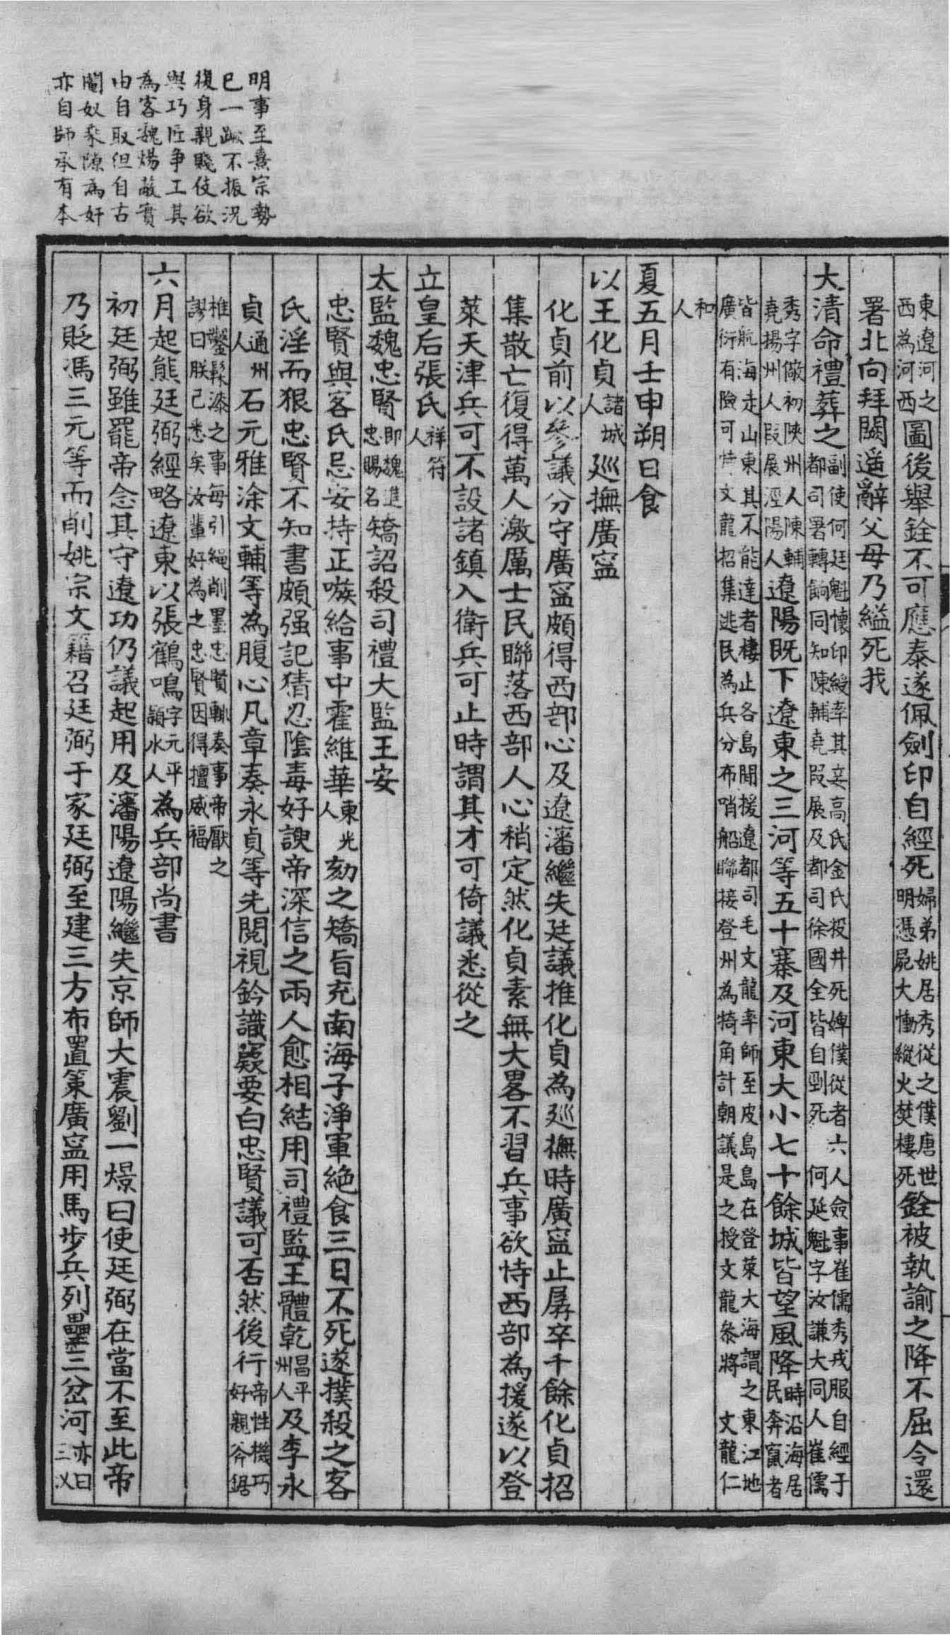 明事至熹宗勢
已一蹶不振況
復身親賤伎欲
與巧匠争工其
為客魏煬蔽實
由自取但自古
閹奴乘隙為奸
亦自師承有本
東遼河之西為河西圖後舉銓不可應泰遂佩劍印自經死婦弟姚居秀從之僕唐世明憑屍大慟縱火焚樓死銓被執諭之降不屈令還
署北向拜闕遥辭父母乃縊死我
大清命禮葬之副使何廷魁懷印綬率其妾高氏金氏投井死婢僕從者六人僉事崔儒秀戎服自經于都司署轉餉同知陳輔堯段展及都司徐國全皆自剄死 何廷魁字汝謙大同人崔儒
秀字儆初陝州人陳輔堯揚州人段展涇陽人遼陽既下遼東之三河等五十寨及河東大小七十餘城皆望風降時沿海居民奔竄者
皆航海走山東其不能達者棲止各島間援遼都司毛文龍率師至皮島島在登萊大海謂之東江地廣衍有險可恃文龍招集逃民為兵分布哨船聯接登州為犄角計朝議是之授文龍叅將 文龍仁
和人
夏五月壬申朔日食
以王化貞諸城人廵撫廣寍
化貞前以叅議分守廣寍頗得西部心及遼瀋繼失廷議推化貞為廵撫時廣寍止孱卒千餘化貞招
集散亡復得萬人激厲士民聯落西部人心稍定然化貞素無大畧不習兵事欲恃西部為援遂以登
萊天津兵可不設諸鎮入衛兵可止時謂其才可倚議悉從之
立皇后張氏祥符人
太監魏忠賢即魏進忠賜名矯詔殺司禮大監王安
忠賢與客氏忌安持正嗾給事中霍維華東光人劾之矯旨充南海子淨軍絶食三日不死遂撲殺之客
氏淫而狠忠賢不知書頗强記猜忍陰毒好諛帝深信之兩人愈相結用司禮監王體乾昌平州人及李永
貞通州人石元雅涂文輔等為腹心凡章奏永貞等先閱視鈐識窾要白忠賢議可否然後行帝性機巧好親斧鋸
椎鑿髹漆之事每引繩削墨忠賢輒奏事帝厭之謬曰朕已悉矣汝輩好為之忠賢因得擅威福
六月起熊廷弼經略遼東以張鶴鳴字元平潁水人為兵部尚書
初廷弼雖罷帝念其守遼功仍議起用及瀋陽遼陽繼失京師大震劉一燝曰使廷弼在當不至此帝
乃貶馮三元等而削姚宗文籍召廷弼于家廷弼至建三方布置策廣寍用馬步兵列壘三岔河亦曰三汊